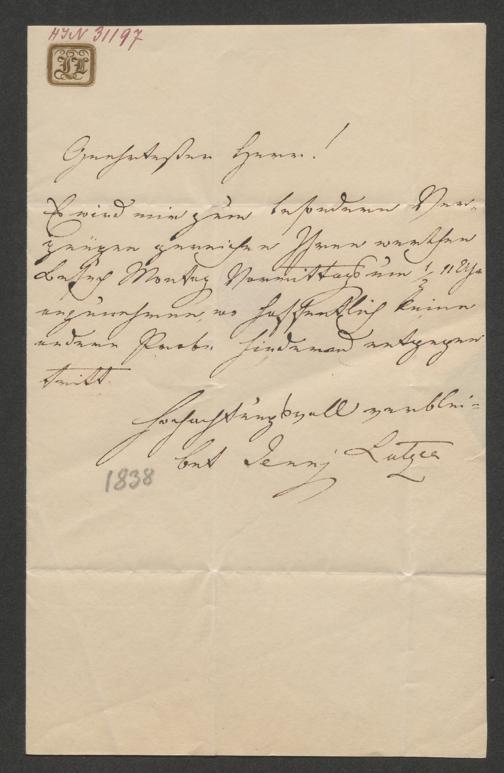 HIN 31197
JL
Geehrtester Herr!
Es wird mir zum besonderen Ver-
gnügen gereichen Ihren werthen
Besuch Montag Vormittags um ½ 11 Uhr
anzunehmen, wo hoffentlich keine
andere Probe hindernd entgegen
tritt.
Hochachtungsvoll verblei-
bet Jenny Lutzer
1838